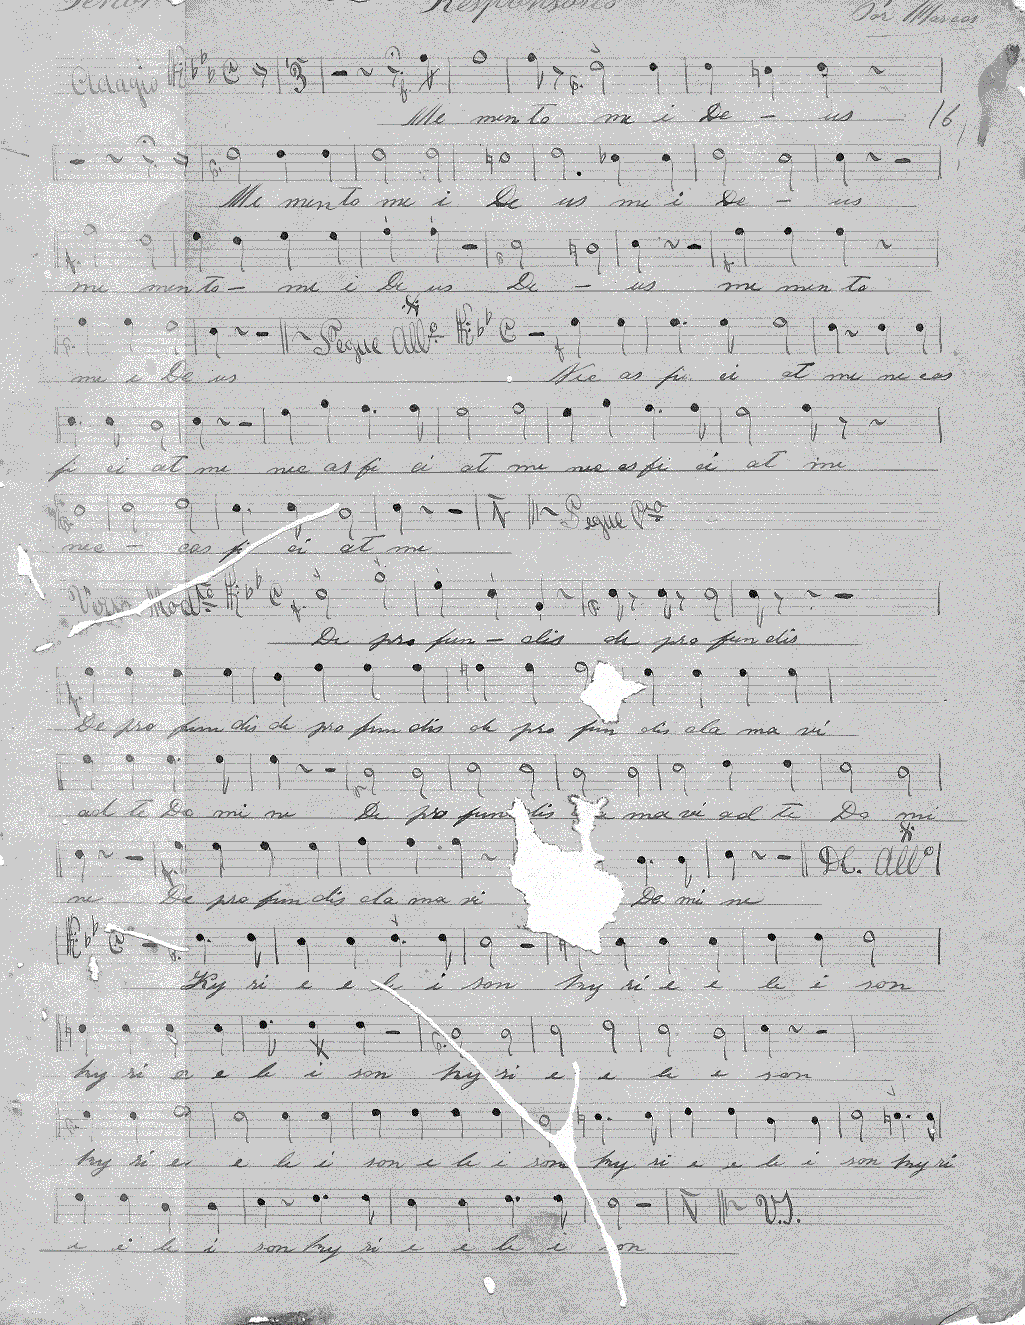 Tenor Responsorio Por Marcos
Adagio
Me men to me i De - us 16
Me men to me i De us me i De - us
me men to - me i De us De - us me men to
Segue All.º
me i De us Nec as pi ci at me ne cas
pi ci at me nec as pi ci at me nec as pi ci at me
Segue
nec - cas pi ci at me
Mod.to
De pro fun - dis de pro fun dis
De pro fun dis de pro fun dis de pro fun dis cla ma vi
ad te Do mi ne De pro fun dis ma vi ad te Do mi
D.C. All.º
ne De pro fun dis cla ma vi Do mi ne
Ky ri e e le i son ky ri e e le i son
ky ri e e le i son ky ri e e le i son
ky ri e e le i son e le i son ky ri e e le i son ky ri
V.S.
e e le i son ky ri e e le i son